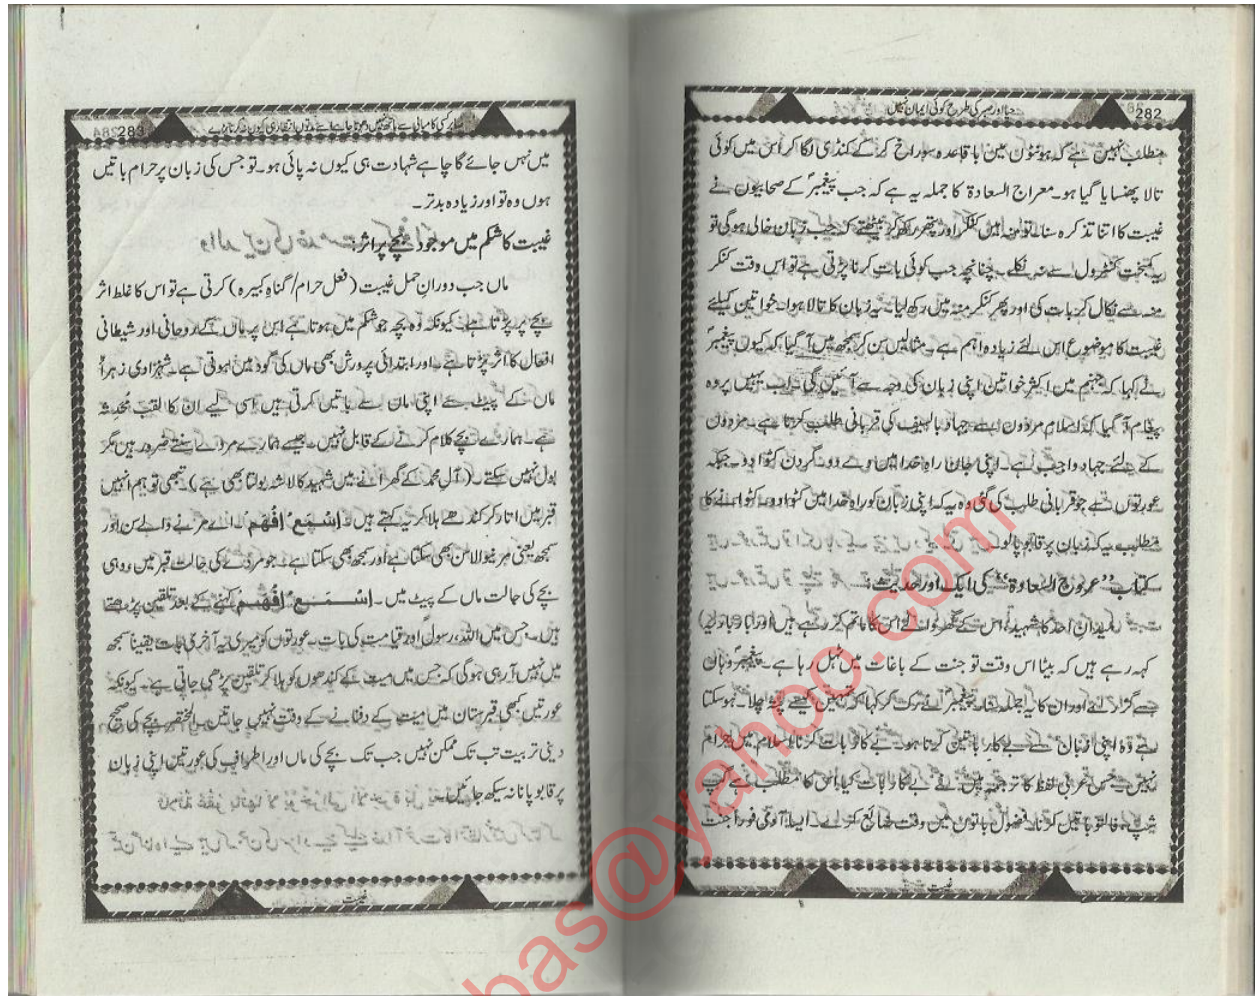 282
حیا اور صبر کی طرح کوئی ایمان نہیں
مطلب نہیں ہے کہ ہونٹوں میں باقاعدہ سوراخ کر کے کنڈی لگا کر اس میں کوئی
تالا پھنسایا گیا ہو۔ معراج السعادۃ کا جملہ یہ ہے کہ جب پیغمبرؐ کے صحابیوں نے
غیبت کا اتنا تذکرہ سنا۔ تو منہ میں کنکر اور پتھر رکھ کر بیٹھتے کہ جب زبان خالی ہوگی تو
یہ کمبخت کنٹرول سے نہ نکلے۔ چنانچہ جب کوئی بات کرنا پڑتی ہے تو اس وقت کنکر
منہ سے نکال کر بات کی اور پھر کنکر منہ میں رکھ لیا۔ یہ زبان کا تالا ہوا۔ خواتین کیلئے
غیبت کا موضوع اس لئے زیادہ اہم ہے۔ مثالیں سن کر سمجھ میں آ گیا کہ کیوں پیغمبرؐ
نے کہا کہ جہنم میں اکثر خواتین اپنی زبان کی وجہ سے آئیں گی۔ اب یہیں پر وہ
پیغام آ گیا کہ اسلام مردوں سے جہاد بالسیف کی قربانی طلب کرتا ہے۔ مردوں
کے لئے جہاد واجب ہے۔ اپنی جان راہِ خدا میں دے دو۔ گردن کٹوا دو۔ جبکہ
عورتوں سے جو قربانی طلب کی گئی وہ یہ کہ اپنی زبان کو راہِ خدا میں کٹوا دو۔ کٹوانے کا
مطلب یہ کہ زبان پر قابو پا لو۔
کتاب "عروج السعادۃ" کی ایک اور حدیث:
میدانِ احد کا شہید، اس کے گھر والے اس کا ماتم کر رہے ہیں اور (ماں باپ)
کہہ رہے ہیں کہ بیٹا اس وقت تو جنت کے باغات میں ٹہل رہا ہے۔ پیغمبرؐ وہاں
سے گزرے اور ان کا یہ جملہ سنا، پیغمبرؐ نے رک کر کہا کہ تمہیں کیسے پتہ چلا۔ ہو سکتا
ہے وہ اپنی زبان سے بے کار باتیں کرتا ہو۔ بے کار بات کرنا اسلام میں حرام
نہیں ہے جس عربی لفظ کا ترجمہ میں نے بے کار بات کیا اس کا مطلب ہے گپ
شپ، فالتو باتیں کرنا، فضول باتوں میں وقت ضائع کرنا۔ ایسا آدمی فوراً جنت
غیبت
283
صابر کی کامیابی سے ہاتھ نہیں دھوتا چاہے اسے مدتوں انتظار ہی کیوں نہ کرنا پڑے
میں نہیں جائے گا چاہے شہادت ہی کیوں نہ پائی ہو۔ تو جس کی زبان پر حرام باتیں
ہوں وہ تو اور زیادہ بدتر۔
غیبت کا شکم میں موجود بچے پر اثر:
ماں جب دورانِ حمل غیبت (فعل حرام/گناہِ کبیرہ) کرتی ہے تو اس کا غلط اثر
بچے پر پڑتا ہے۔ کیونکہ وہ بچہ جو شکم میں ہوتا ہے اس پر ماں کے روحانی اور شیطانی
افعال کا اثر پڑتا ہے۔ اور ابتدائی پرورش بھی ماں کی گود میں ہوتی ہے۔ شہزادی زہراؑ
ماں کے پیٹ سے اپنی ماں سے باتیں کرتی ہیں اسی لیے ان کا لقب مُحدثہ
ہے۔ ہمارے بچے کلام کرنے کے قابل نہیں۔ جیسے ہمارے مردے سنتے ضرور ہیں مگر
بول نہیں سکتے۔ (آلِ محمدؐ کے گھرانے میں شہید کا لاشہ بولتا بھی ہے)۔ تبھی تو ہم انہیں
قبر میں اتار کر کندھے ہلا کر یہ کہتے ہیں۔ اِسْمَعْ اِفْهَمْ اے مرنے والے سن اور
سمجھ یعنی مرنیوالا سن بھی سکتا ہے اور سمجھ بھی سکتا ہے۔ جو مردے کی حالت قبر میں وہ ہی
بچے کی حالت ماں کے پیٹ میں۔ اِسْمَعْ اِفْهَمْ کہنے کے بعد تلقین پڑھتے
ہیں۔ جس میں اللہ، رسولؐ اور قیامت کی بات۔ عورتوں کو میری یہ آخری بات یقیناً سمجھ
میں نہیں آ رہی ہوگی کہ جس میں میت کے کندھوں کو ہلا کر تلقین پڑھی جاتی ہے۔ کیونکہ
عورتیں کبھی قبرستان میں میت کے دفنانے کے وقت نہیں جاتیں۔ المختصر بچے کی صحیح
دینی تربیت تب تک ممکن نہیں جب تک بچے کی ماں اور اطراف کی عورتیں اپنی زبان
پر قابو پانا نہ سیکھ جائیں۔
غیبت
bas@yahoo.com